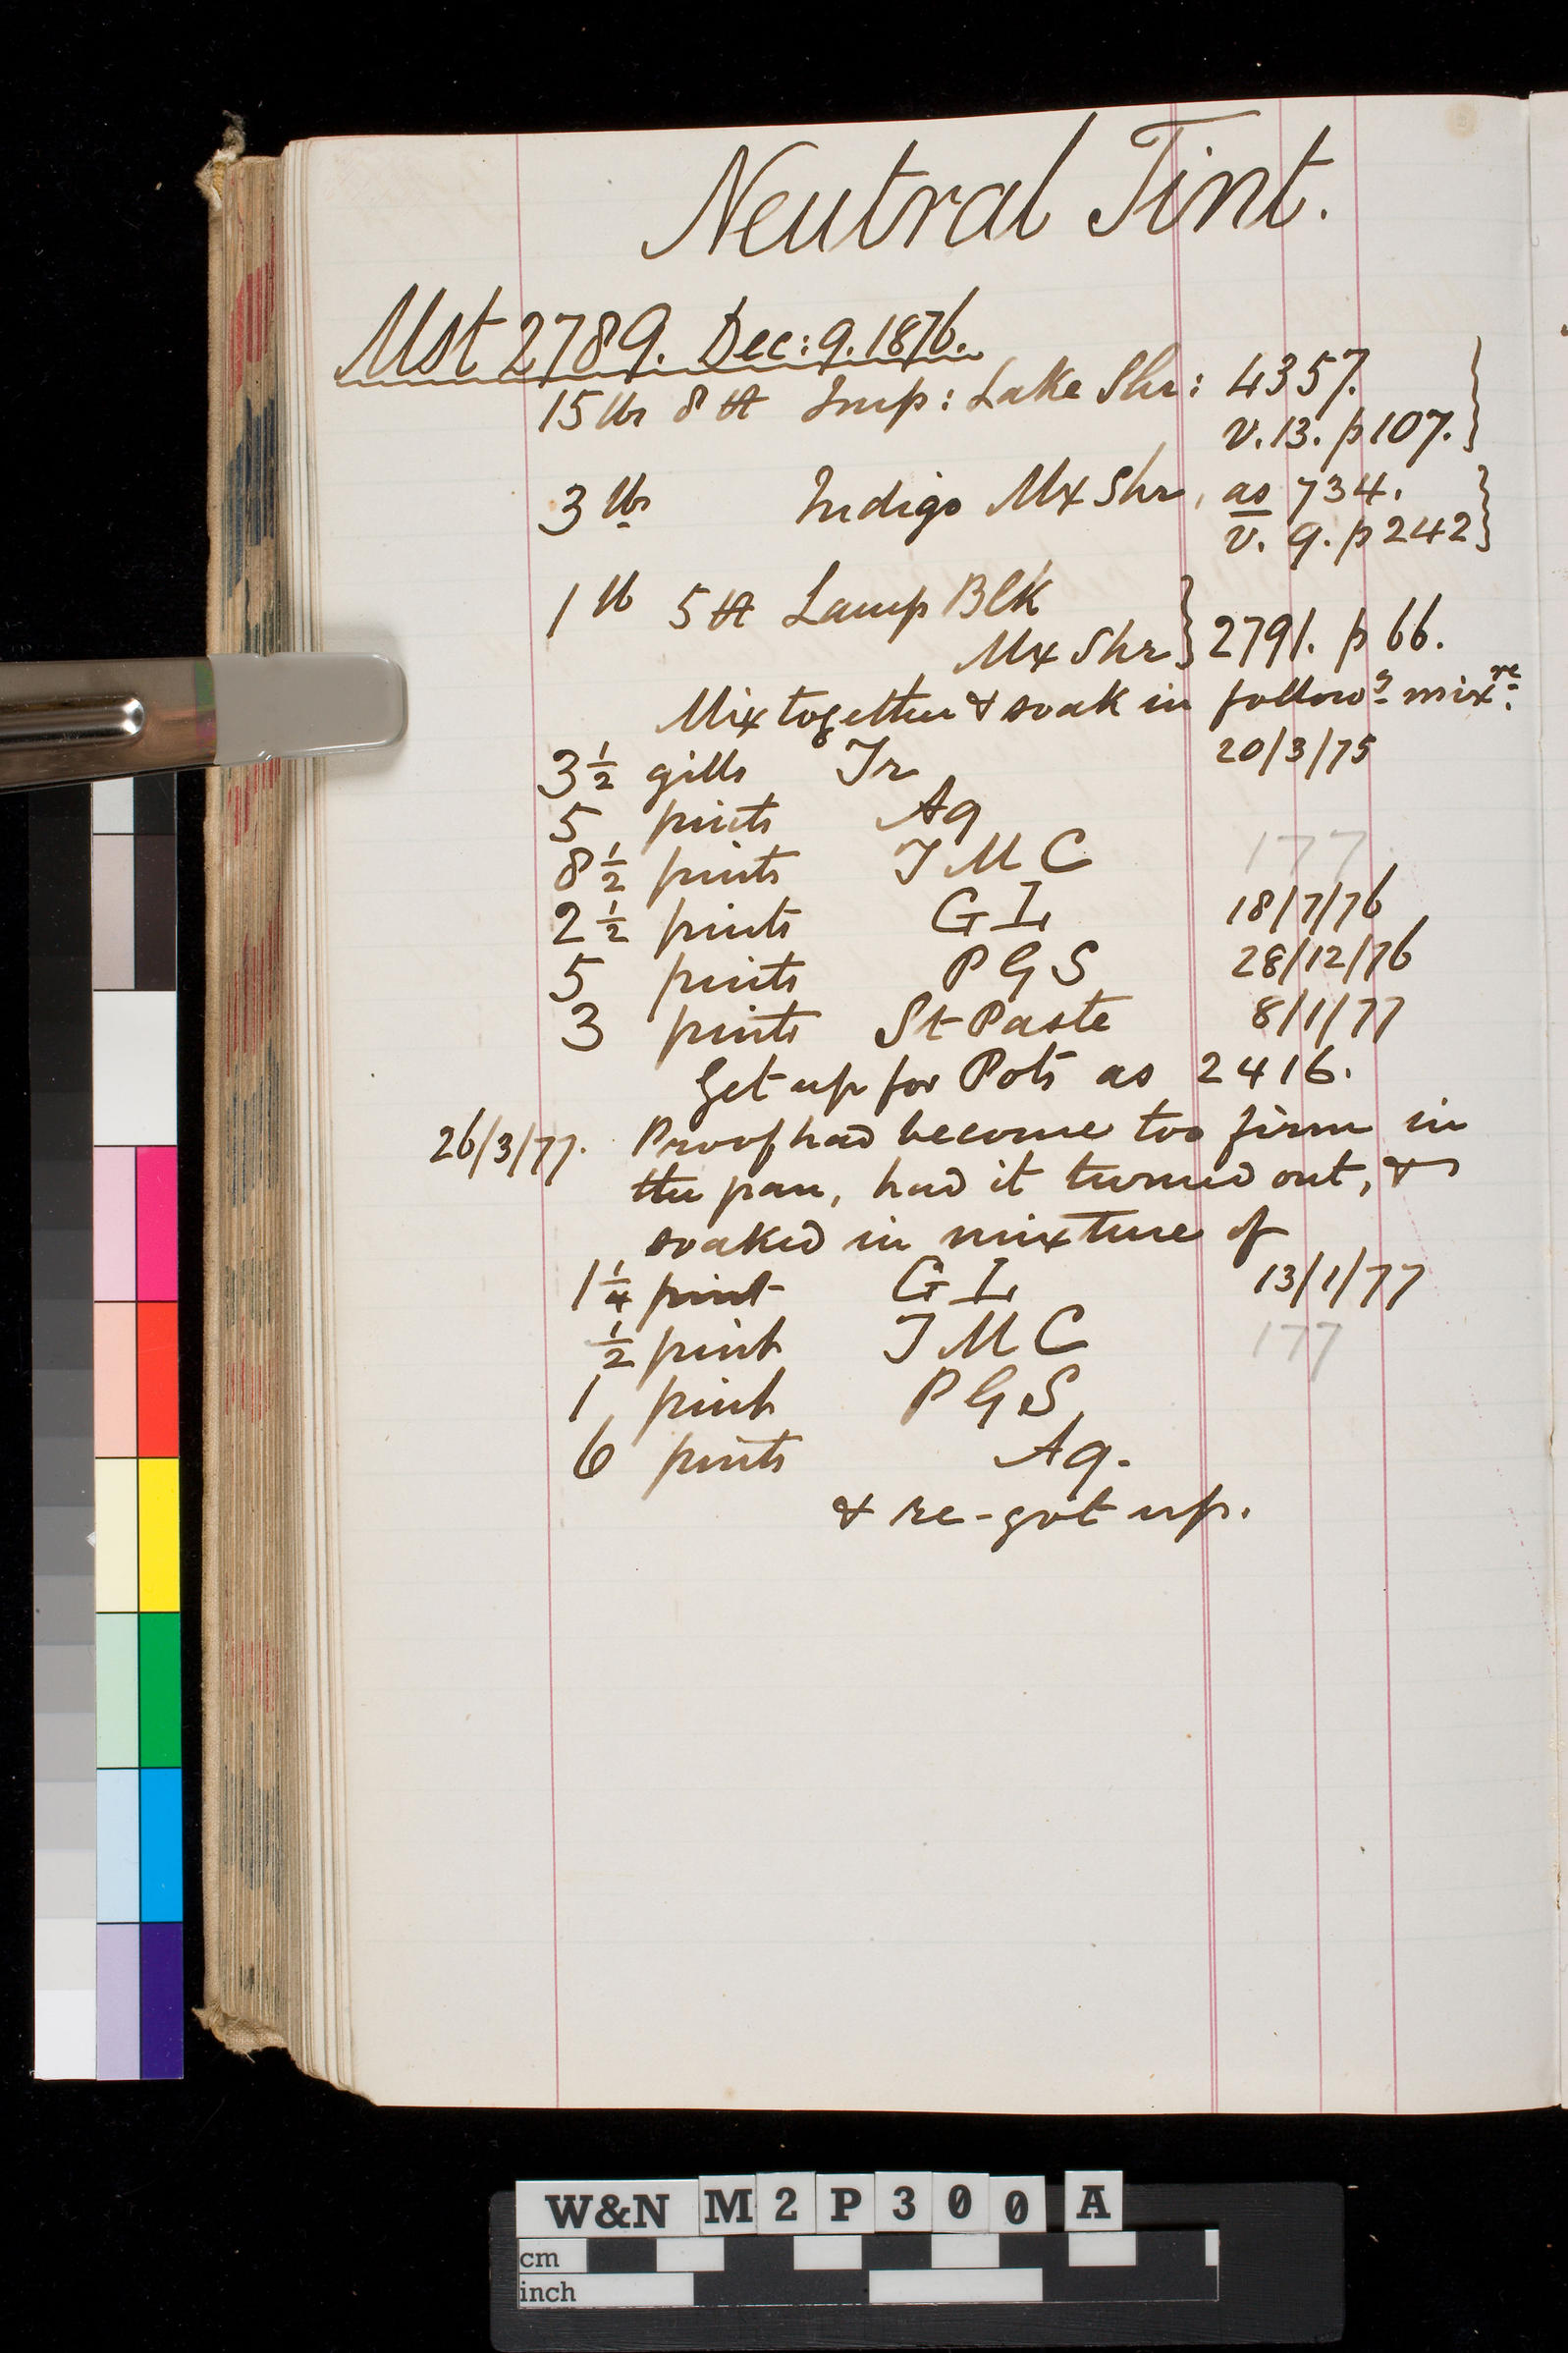 Neutral Tint.
Mst 2789. Dec: 9. 1876.
15 lbs 8 Imp: Lake Shr: 4357.
v. 13. p 107.
3 lbs Indigo Mx Shr, as 734.
v. 9. p 242
1 lb 5 Lamp Blk
Mx Shr } 2791. p 66.
Mix together & soak in followg mixre:
3½ gills Tr 20/3/75
5 pints Aq
8½ pints TMC 177
2½ pints GL 18/7/76
5 pints PGS 28/12/76
3 pints St Paste 8/1/77
Get up for Pots as 2416.
26/3/77. Proof had become too firm in
the pan, had it turned out, &
soaked in mixture of
1¼ pint GL 13/1/77
½ pint TMC 177
1 pint PGS
6 pints Aq.
& re-got up.
W&N M2P300 A
cm
inch